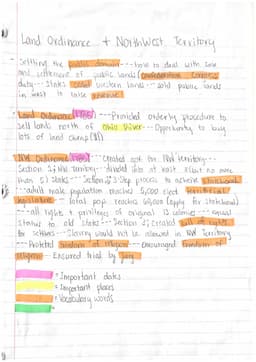 Land Ordinance + Northwest Territory
- Settling the public domain --- how to deal with sale
and settlement of public lands (confederation congress
duty --- states ceded western lands --- sold public lands
in west to raise revenue!
- Land Ordinance (1785) --- Provided orderly procedure to
sell lands north of Ohio River --- Opportunity to buy
lots of land cheap
- NW Ordinance (1787) --- Created out the NW territory ---
Section 1: the territory divided into at least 3 but no more
than 5 states --- Section 2: 3 step process to achieve statehood
--- adult male population reached 5,000 elect territorial
legislature --- total pop. reaches 60,000 (apply for statehood)
--- all rights + privileges of original 13 colonies --- equal
status to old states --- Section 3: created bill of rights
for settlers --- Slavery would not be allowed in NW Territory
--- Protected freedom of religion --- Encouraged freedom of
religion --- Ensured trial by jury
= Important dates
= Important places
= Vocabulary words